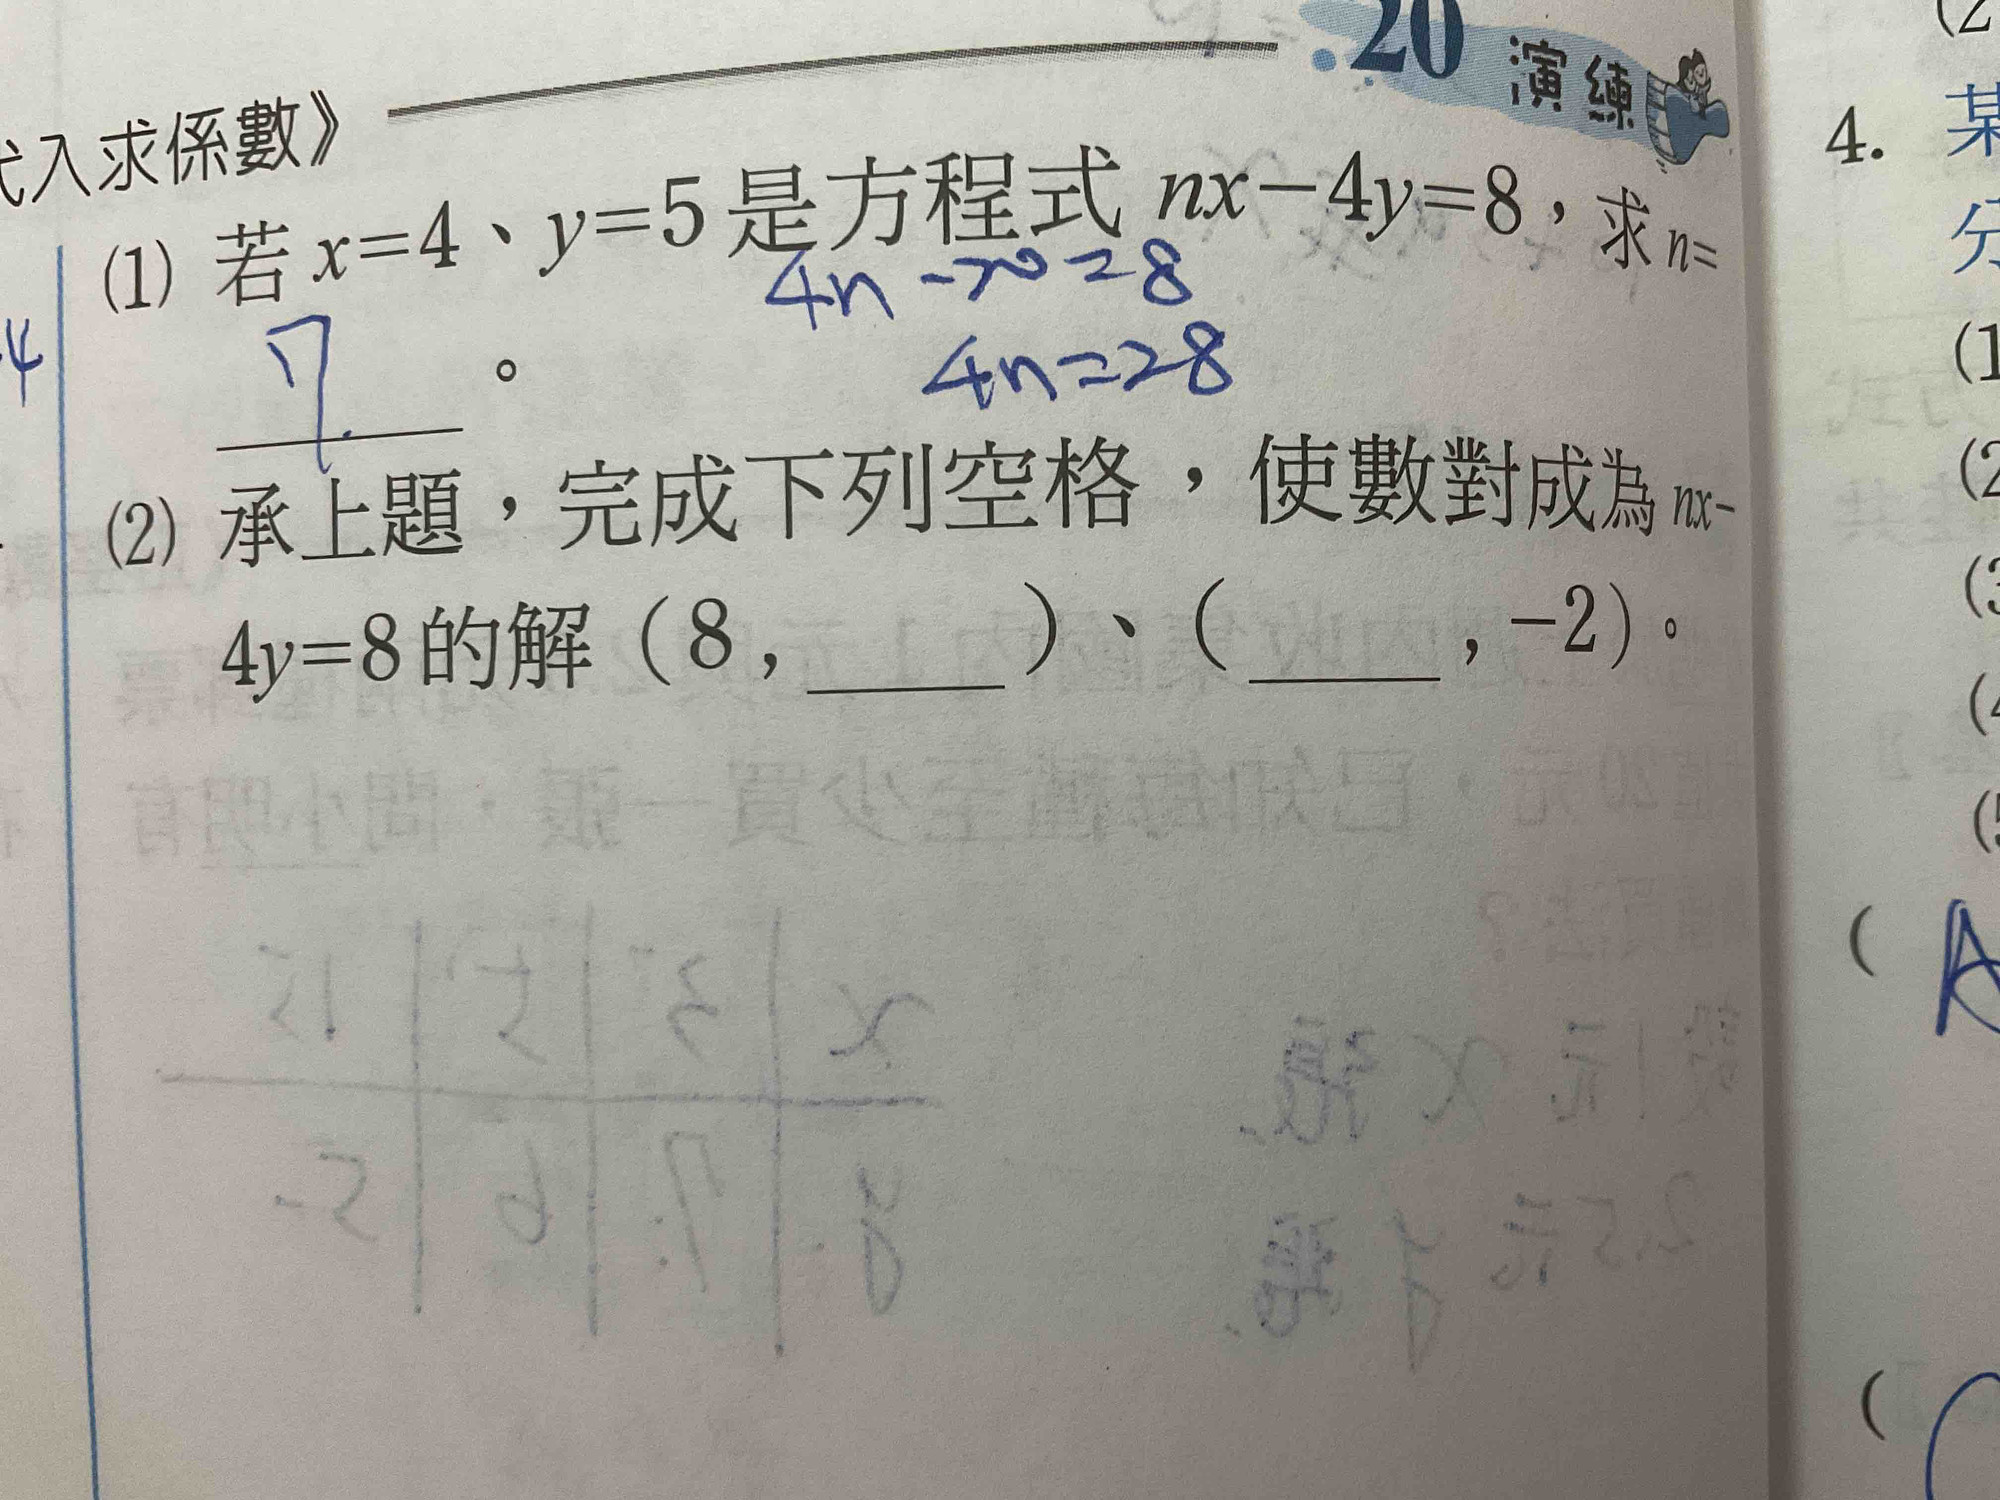 20 演練
代入求係數》
(1) 若 x=4、y=5 是方程式 nx-4y=8，求 n=
4n-20=8
7 。
4n=28
(2) 承上題，完成下列空格，使數對成為 nx-
4y=8 的解 ( 8 , ____ )、( ____ , -2 )。
-4
4. 某
分
(1
(2
(3
(4
(5
( A
(